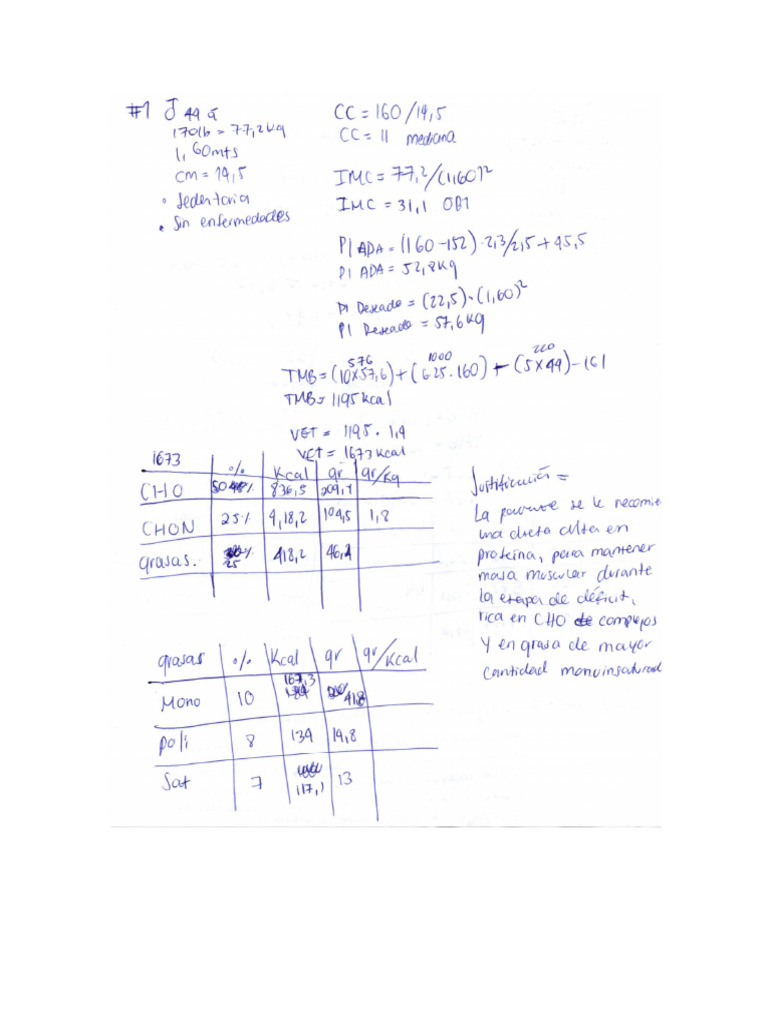 #1 ♂ 49 a
170lb = 77,2kg
1,60mts
cm = 14,5
• Sedentaria
• Sin enfermedades
CC = 160/14,5
CC = 11 mediana
IMC = 77,2/(1,60)²
IMC = 31,1 OB1
PI ADA = (160-152)·2,3/2,5+45,5
PI ADA = 52,8kg
PI Deseado = (22,5)·(1,60)²
PI Deseado = 57,6kg
576 1000 220
TMB = (10x57,6)+(6.25·160)-(5x49)-161
TMB = 1195kcal
VET = 1195·1,4
VET = 1673kcal
1673 % Kcal gr gr/kg
CHO 50% 836,5 209,1
CHON 25% 4,18,2 104,5 1,8
grasas. 25% 418,2 46,4
Justificación =
La paciente se le recomie
una dieta alta en
proteína, para mantener
masa muscular durante
la etapa de déficit,
rica en CHO complejos
Y en grasa de mayor
cantidad monoinsaturad
grasas % Kcal gr gr/Kcal
Mono 10 167,3 41,8
poli 8 134 14,8
Sat 7 117,1 13